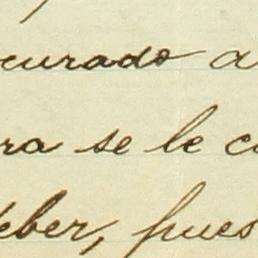 curado a
ra se le c
eber, pues